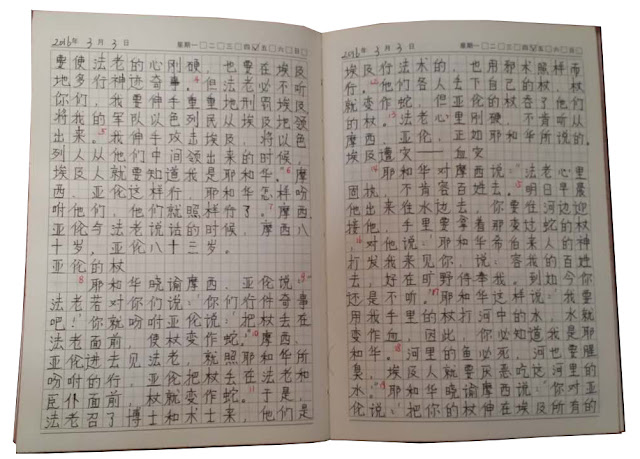 2016年 3月 3日 星期一□二□三□四☑五□六□日□
要使法老的心刚硬 也要在埃及
地多行神迹奇事。4但法老必不听
你们，我要伸手重重地刑罚埃及
将我的军队以色列民从埃及地领
出来。5我伸手攻击埃及，将以色
列人从他们中间领出来的时候，
埃及人就要知道我是耶和华。6摩
西，亚伦这样行 耶和华怎样吩
咐他们，他们就照样行了。7摩西，
亚伦与法老说话的时候，摩西八
十岁，亚伦八十三岁。
亚伦的杖
8耶和华晓谕摩西，亚伦说：9
法老若对你们说：你们行件奇事
吧！你就吩咐亚伦说：把杖丢在
法老面前，使杖变作蛇。10摩西，
亚伦进去见法老，就照耶和华所
吩咐的行，亚伦把杖丢在法老和
臣仆面前，杖就变作蛇。11于是，
法老召了博士和术士来，他们是
2016年 3月 3日 星期一□二□三□四☑五□六□日□
埃及行法术的，也用邪术照样而
行。12他们各人丢下自己的杖，杖
就变作蛇，但亚伦的杖吞了他们
的杖。13法老心里刚硬，不肯听从
摩西，亚伦，正如耶和华所说的。
埃及遭灾——血灾
14耶和华对摩西说：法老心里
固执，不肯容百姓去。15明日早晨
他出来往水边去，你要往河边迎
接他，手里要拿着那变过蛇的杖
16对他说：耶和华希伯来人的神
打发我来见你，说：容我的百姓
去，好在旷野侍奉我。到如今你
还是不听。17耶和华这样说：我要
用我手里的杖打河中的水，水就
变作血，因此，你必知道我是耶
和华。18河里的鱼必死，河也要腥
臭，埃及人就要厌恶吃这河里的
水。19耶和华晓谕摩西说：你对亚
伦说：把你的杖伸在埃及所有的